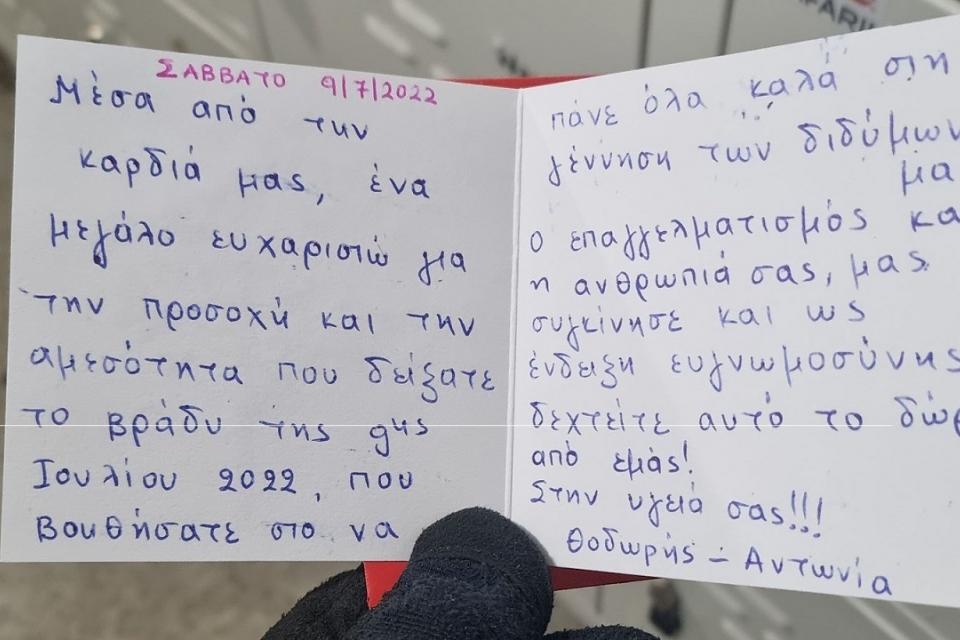 ΣΑΒΒΑΤΟ 9/7/2022
Μέσα από την
καρδιά μας, ένα
μεγάλο ευχαριστώ για
την προσοχή και την
αμεσότητα που δείξατε
το βράδυ της 9ης
Ιουλίου 2022, που
βουθήσατε στο να
πάνε όλα καλά στη
γέννηση των διδύμων
μα
ο επαγγελματισμός κα
η ανθρωπιά σας, μας
συγκίνησε και ως
ένδειξη ευγνωμοσύνης
δεχτείτε αυτό το δώρ
από εμάς!
Στην υγειά σας!!!
Θοδωρής - Αντωνία